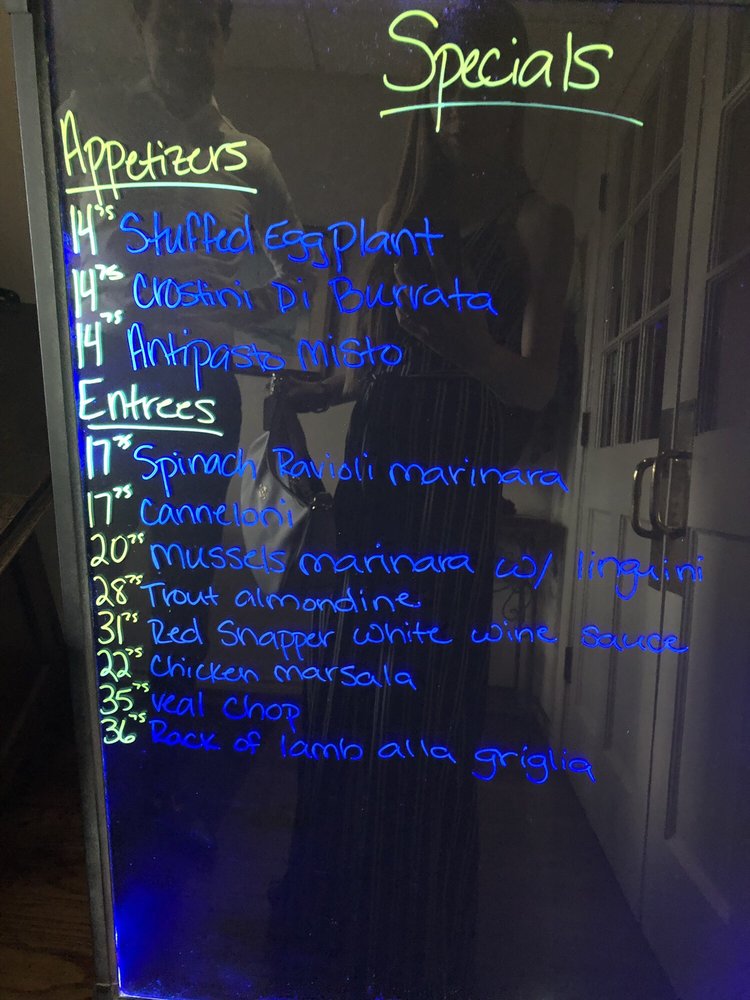 Specials
Appetizers
14⁷⁵ Stuffed Eggplant
14⁷⁵ Crostini Di Burrata
14⁷⁵ Antipasto misto
Entrees
17⁷⁵ Spinach Ravioli marinara
17⁷⁵ Canneloni
20⁷⁵ mussels marinara w/ linguini
28⁷⁵ Trout almondine
31⁷⁵ Red Snapper white wine sauce
22⁷⁵ Chicken marsala
35⁷⁵ veal chop
36⁷⁵ Rack of lamb alla griglia